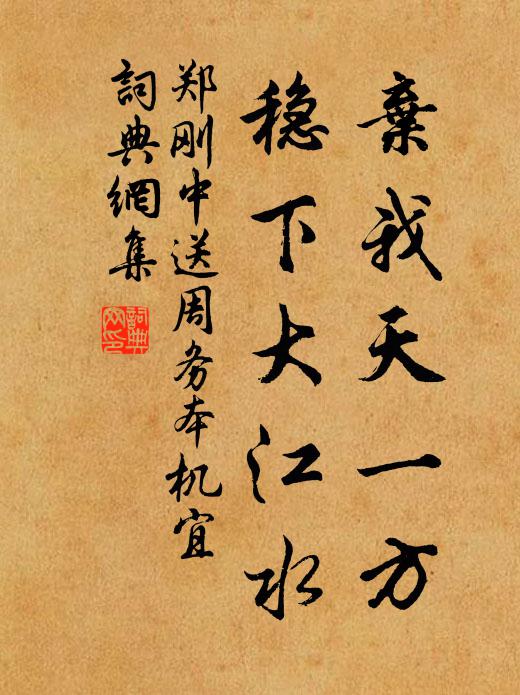 棄我天一方
稳下大江水
郑刚中送周务本机宜
詞典網集
詞典網印